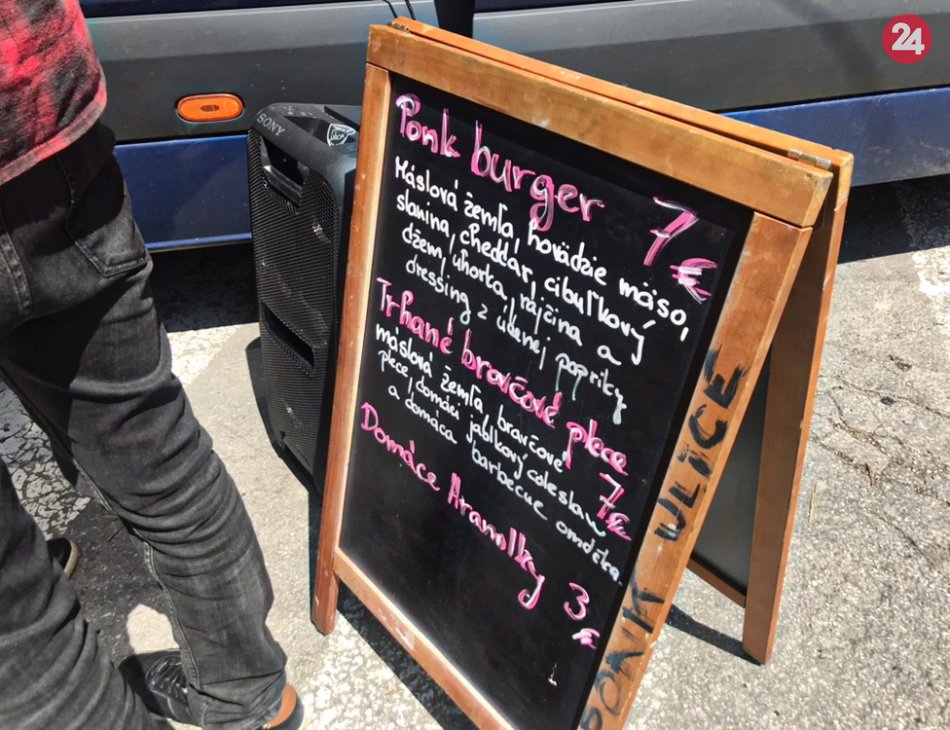 24
SONY
Ponk burger 7 €
Máslová žemľa, hovädzie mäso,
slanina, cheddar, cibuľkový
džem, uhorka, rajčina a
dressing z údenej papriky
Trhané bravčové plece
7 €
máslová žemľa, bravčové
plece, domáci jablkový coleslaw
a domáca barbecue omáčka.
Domáce Hranolky 3
€
PONK ULICE